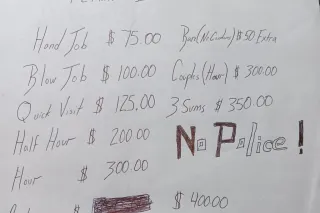 Hand Job $ 75.00 Bare (No Condom) $50 Extra
Blow Job $ 100.00 Couples (Hour) $ 300.00
Quick Visit $ 125.00 3 Sums $ 350.00
Half Hour $ 200.00 No Police!
Hour $ 300.00
$ $ 400.00